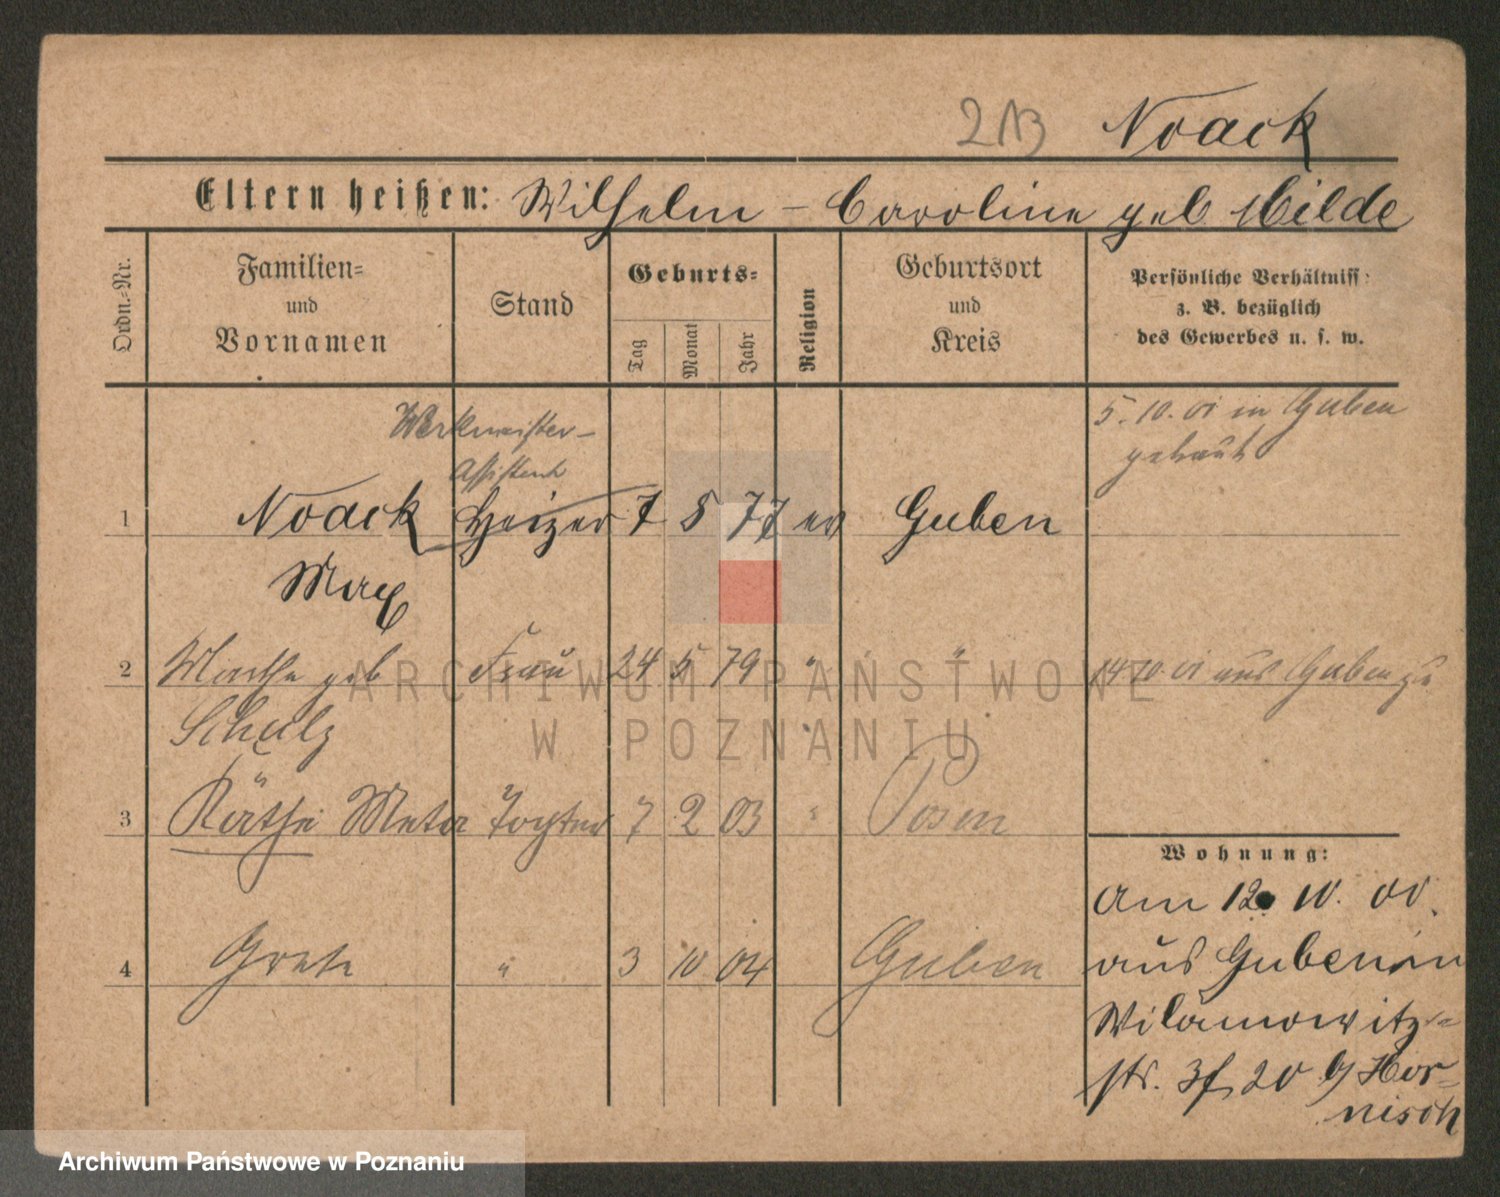 213 Noack
Eltern heißen: Wilhelm – Caroline geb. Milde
Ordn.-Nr.
Familien-
und
Vornamen
Stand
Geburts-
Tag
Monat
Jahr
Religion
Geburtsort
und
Kreis
Persönliche Verhältniss
z. B. bezüglich
des Gewerbes u. s. w.
Werkmeister-
Assistent
5. 10. 01 in Guben
getraut
1 Noack Heizer 7 8 77 ev Guben
Max
2 Marthe geb Frau 24 5 79 " " 14 10 01 aus Guben zu
Schulz
3 Käthe Meta Tochter 7 2 03 " Posen
4 Grete " 3 10 04 Guben
Wohnung:
Am 12. 10. 00.
aus Guben in
Wilamowitz-
str. 3 20 b/ Hor-
nisch
ARCHIWUM PAŃSTWOWE
W POZNANIU
Archiwum Państwowe w Poznaniu